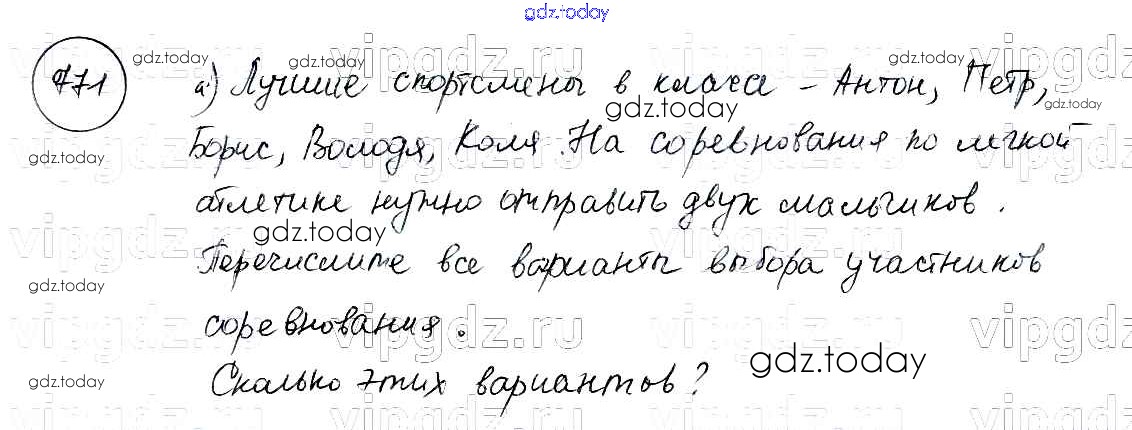 gdz.today
771 а) Лучшие спортсмены в классе – Антон, Петр,
Борис, Володя, Коля. На соревнования по легкой
атлетике нужно отправить двух мальчиков.
Перечислите все варианты выбора участников
соревнования.
Сколько этих вариантов?
gdz.today
gdz.today
gdz.today
gdz.today
gdz.today
gdz.today
gdz.today
vipgdz.ru
vipgdz.ru
vipgdz.ru
vipgdz.ru
vipgdz.ru